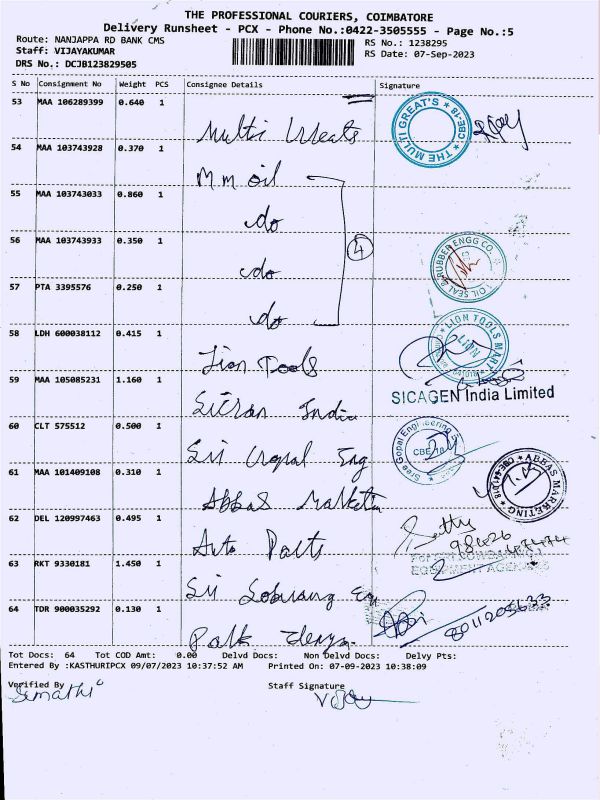 THE PROFESSIONAL COURIERS, COIMBATORE
Delivery Runsheet - PCX - Phone No.:0422-3505555 - Page No.:5
Route: NANJAPPA RD BANK CMS
RS No.: 1238295
Staff: VIJAYAKUMAR
RS Date: 07-Sep-2023
DRS No.: DCJB123829505
S No Consignment No Weight PCS Consignee Details Signature
53 MAA 106289399 0.640 1
THE MULTI GREAT'S CBE-18
Multi
54 MAA 103743928 0.370 1
Mm oil
55 MAA 103743033 0.860 1
do
56 MAA 103743933 0.350 1
4
OIL SEAL & RUBBER ENGG CO.
do
57 PTA 3395576 0.250 1
do
LION TOOLS MART
LION
58 LDH 600038112 0.415 1
Lion Tools
59 MAA 105085231 1.160 1
SICAGEN India Limited
India
60 CLT 575512 0.500 1
Sree Gopal Engineering
CBE
Sri Gopal Eng
61 MAA 101409108 0.310 1
ABBAS MARKETING CBE-641 018
Abbas
62 DEL 120997463 0.495 1
Auto Parts
63 RKT 9330181 1.450 1
EQUIPMENT AGENCIES
Sri
64 TDR 900035292 0.130 1
Tot Docs: 64 Tot COD Amt: 0.00 Delvd Docs: Non Delvd Docs: Delvy Pts:
Entered By :KASTHURIPCX 09/07/2023 10:37:52 AM Printed On: 07-09-2023 10:38:09
Verified By
Staff Signature